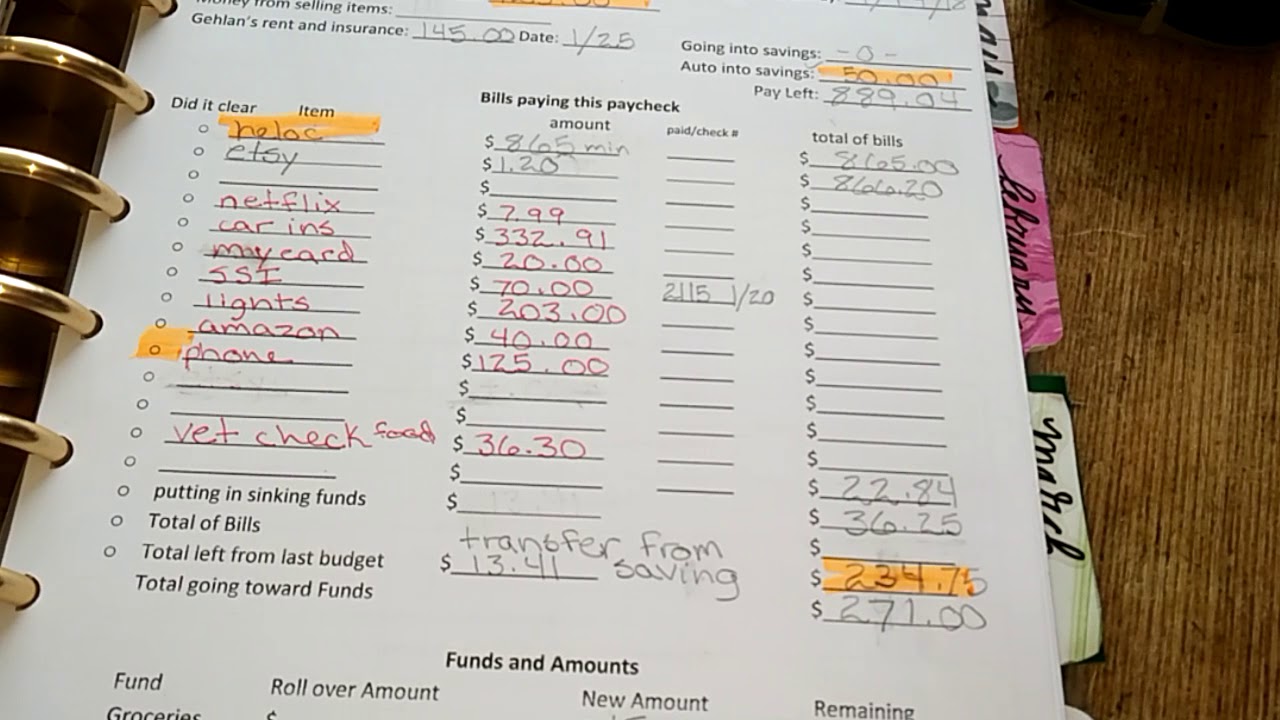 Money from selling items:
Gehlan's rent and insurance: 145.00 Date: 1/25
Going into savings: -0-
Auto into savings: 50.00
Pay Left: 889.04
Did it clear Item
Bills paying this paycheck
amount paid/check # total of bills
heloc $ 865 min $ 865.00
etsy $ 1.20 $ 866.20
$ $
netflix $ 7.99 $
car ins $ 332.91 $
my card $ 20.00 $
SSI $ 70.00 2115 1/20 $
lights $ 203.00 $
amazon $ 40.00 $
phone $ 125.00 $
$ $
$ $
vet check food $ 36.30 $
$ $ 22.84
putting in sinking funds $ $ 36.25
Total of Bills transfer from $
Total left from last budget $ 13.41 saving $ 234.75
Total going toward Funds $ 271.00
Funds and Amounts
Fund Roll over Amount New Amount Remaining
Groceries $
february
march